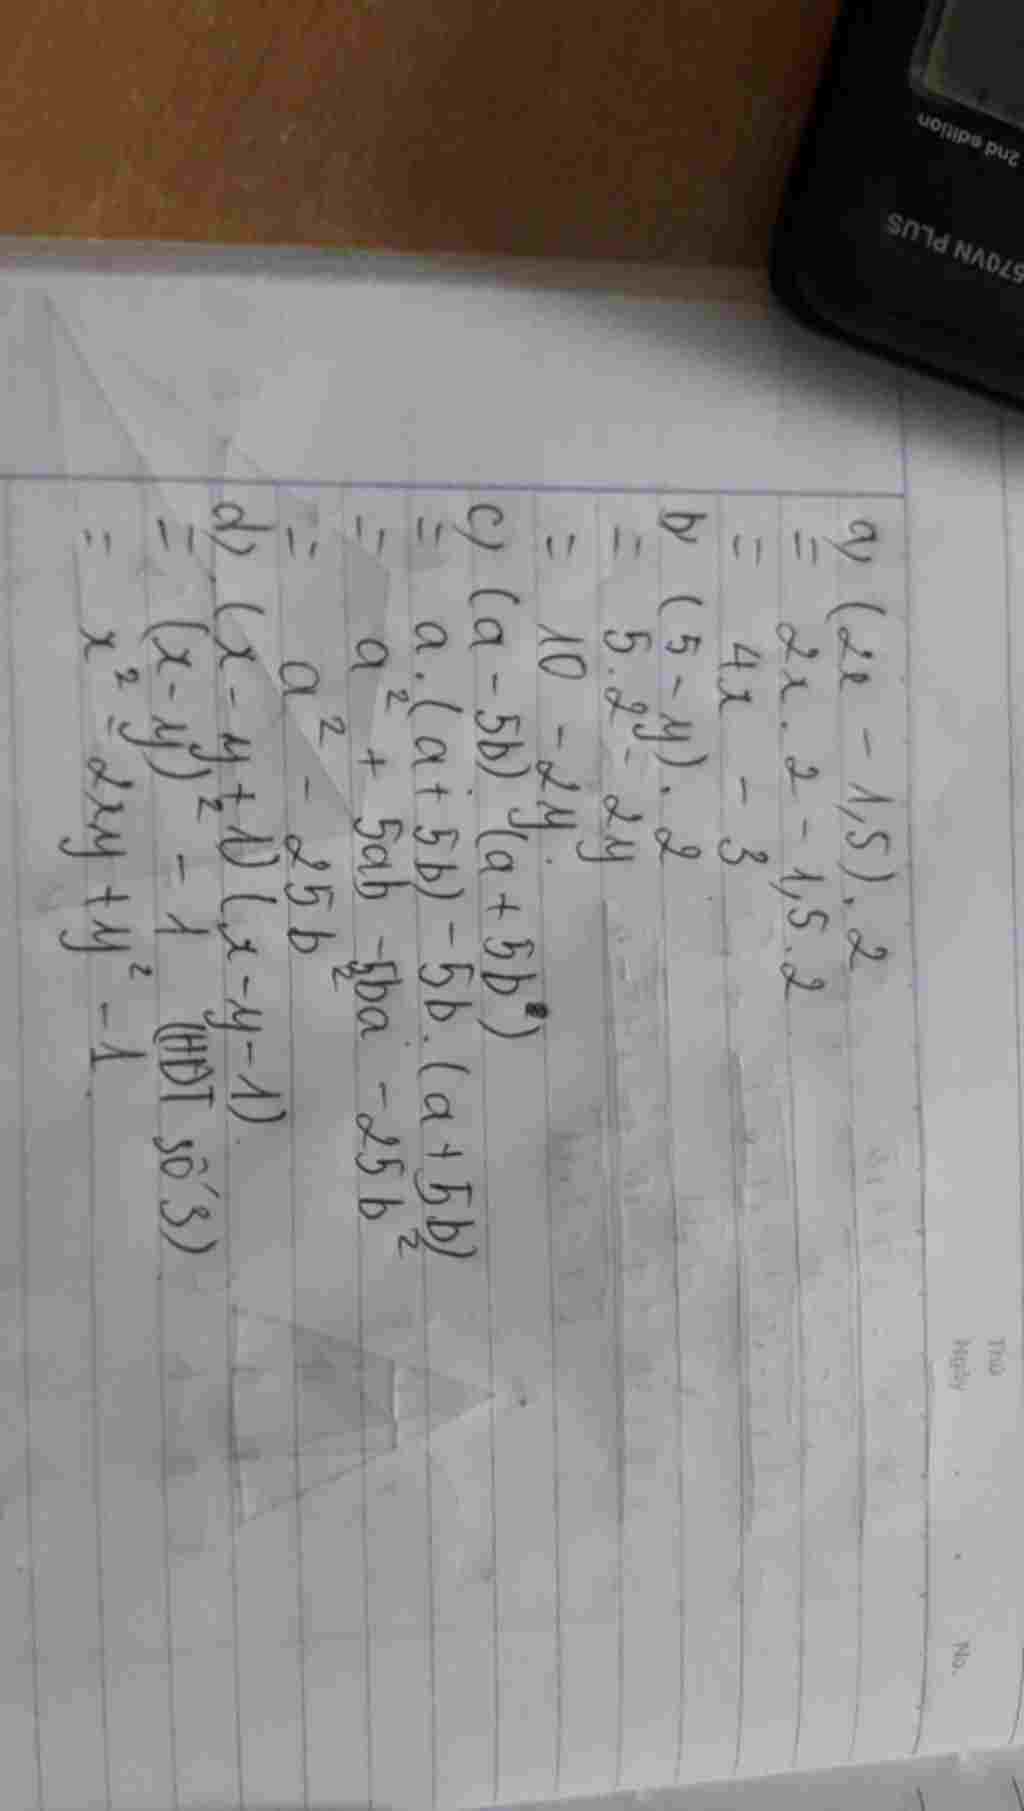 2nd edition
570VN PLUS
Thứ
Ngày
No.
a) (2x - 1,5).2
= 2x.2 - 1,5.2
= 4x - 3
b) (5 - y).2
= 5.2 - 2y
= 10 - 2y.
c) (a - 5b) (a + 5b)
= a.(a + 5b) - 5b.(a + 5b)
= a² + 5ab - 5ba - 25b²
= a² - 25b²
d) (x - y + 1) (x - y - 1)
= (x - y)² - 1 (HĐT số 3)
= x² - 2xy + y² - 1.